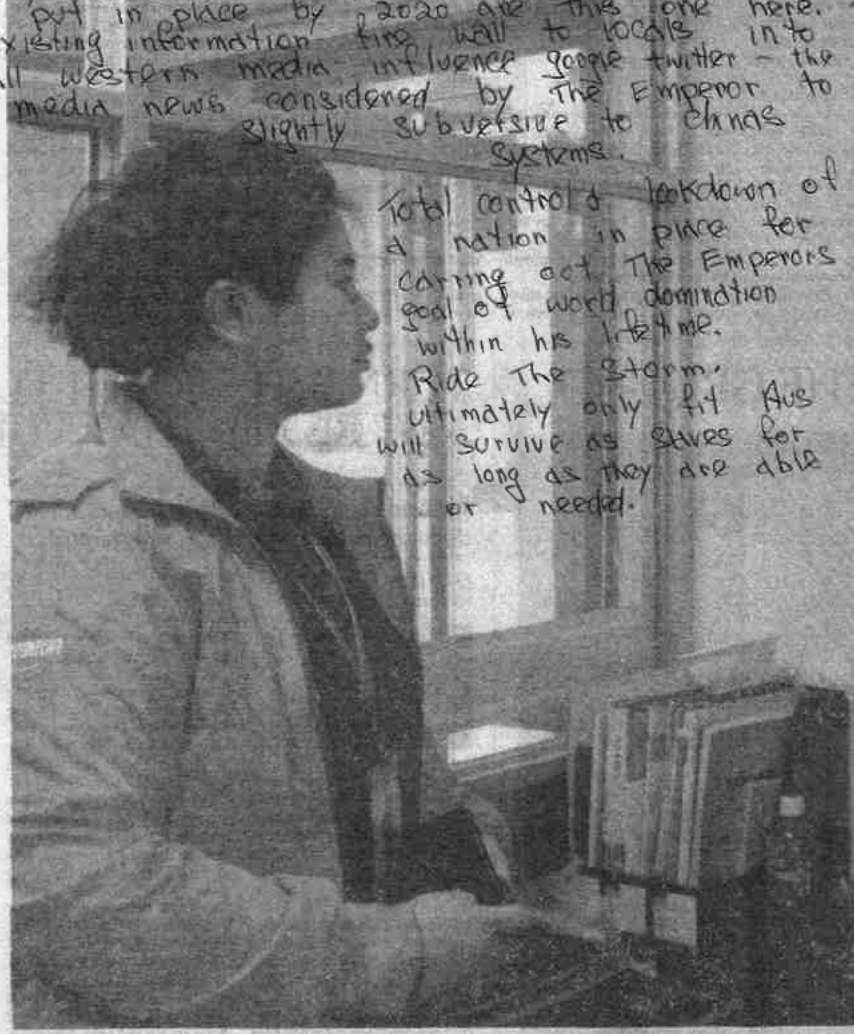 put in place by 2020 are this one here.
xisting information fire wall to locals into
ll western media influence google twitter - the
media news considered by The Emperor to
slightly subversive to chinas
systems.
Total control & lockdown of
a nation in place for
carring oot The Emperors
goal of word domination
within his lifetime.
Ride The Storm.
ultimately only fit Aus
will survive as slaves for
as long as they are able
or needed.